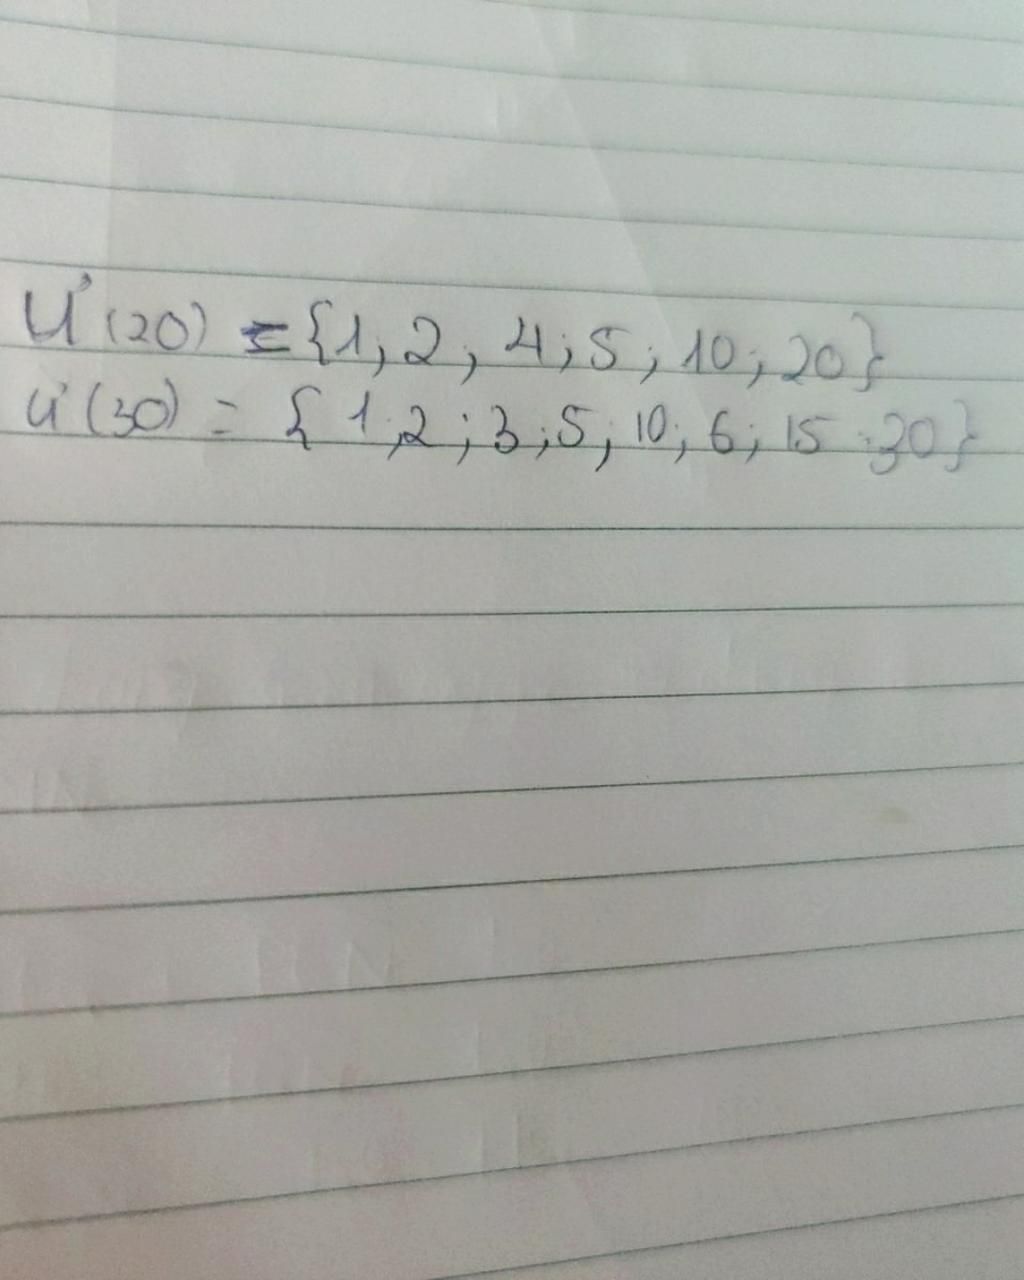 Ư(20) = {1; 2; 4; 5; 10; 20}
Ư(30) = { 1;2 ; 3 ; 5; 10; 6; 15 ; 30}